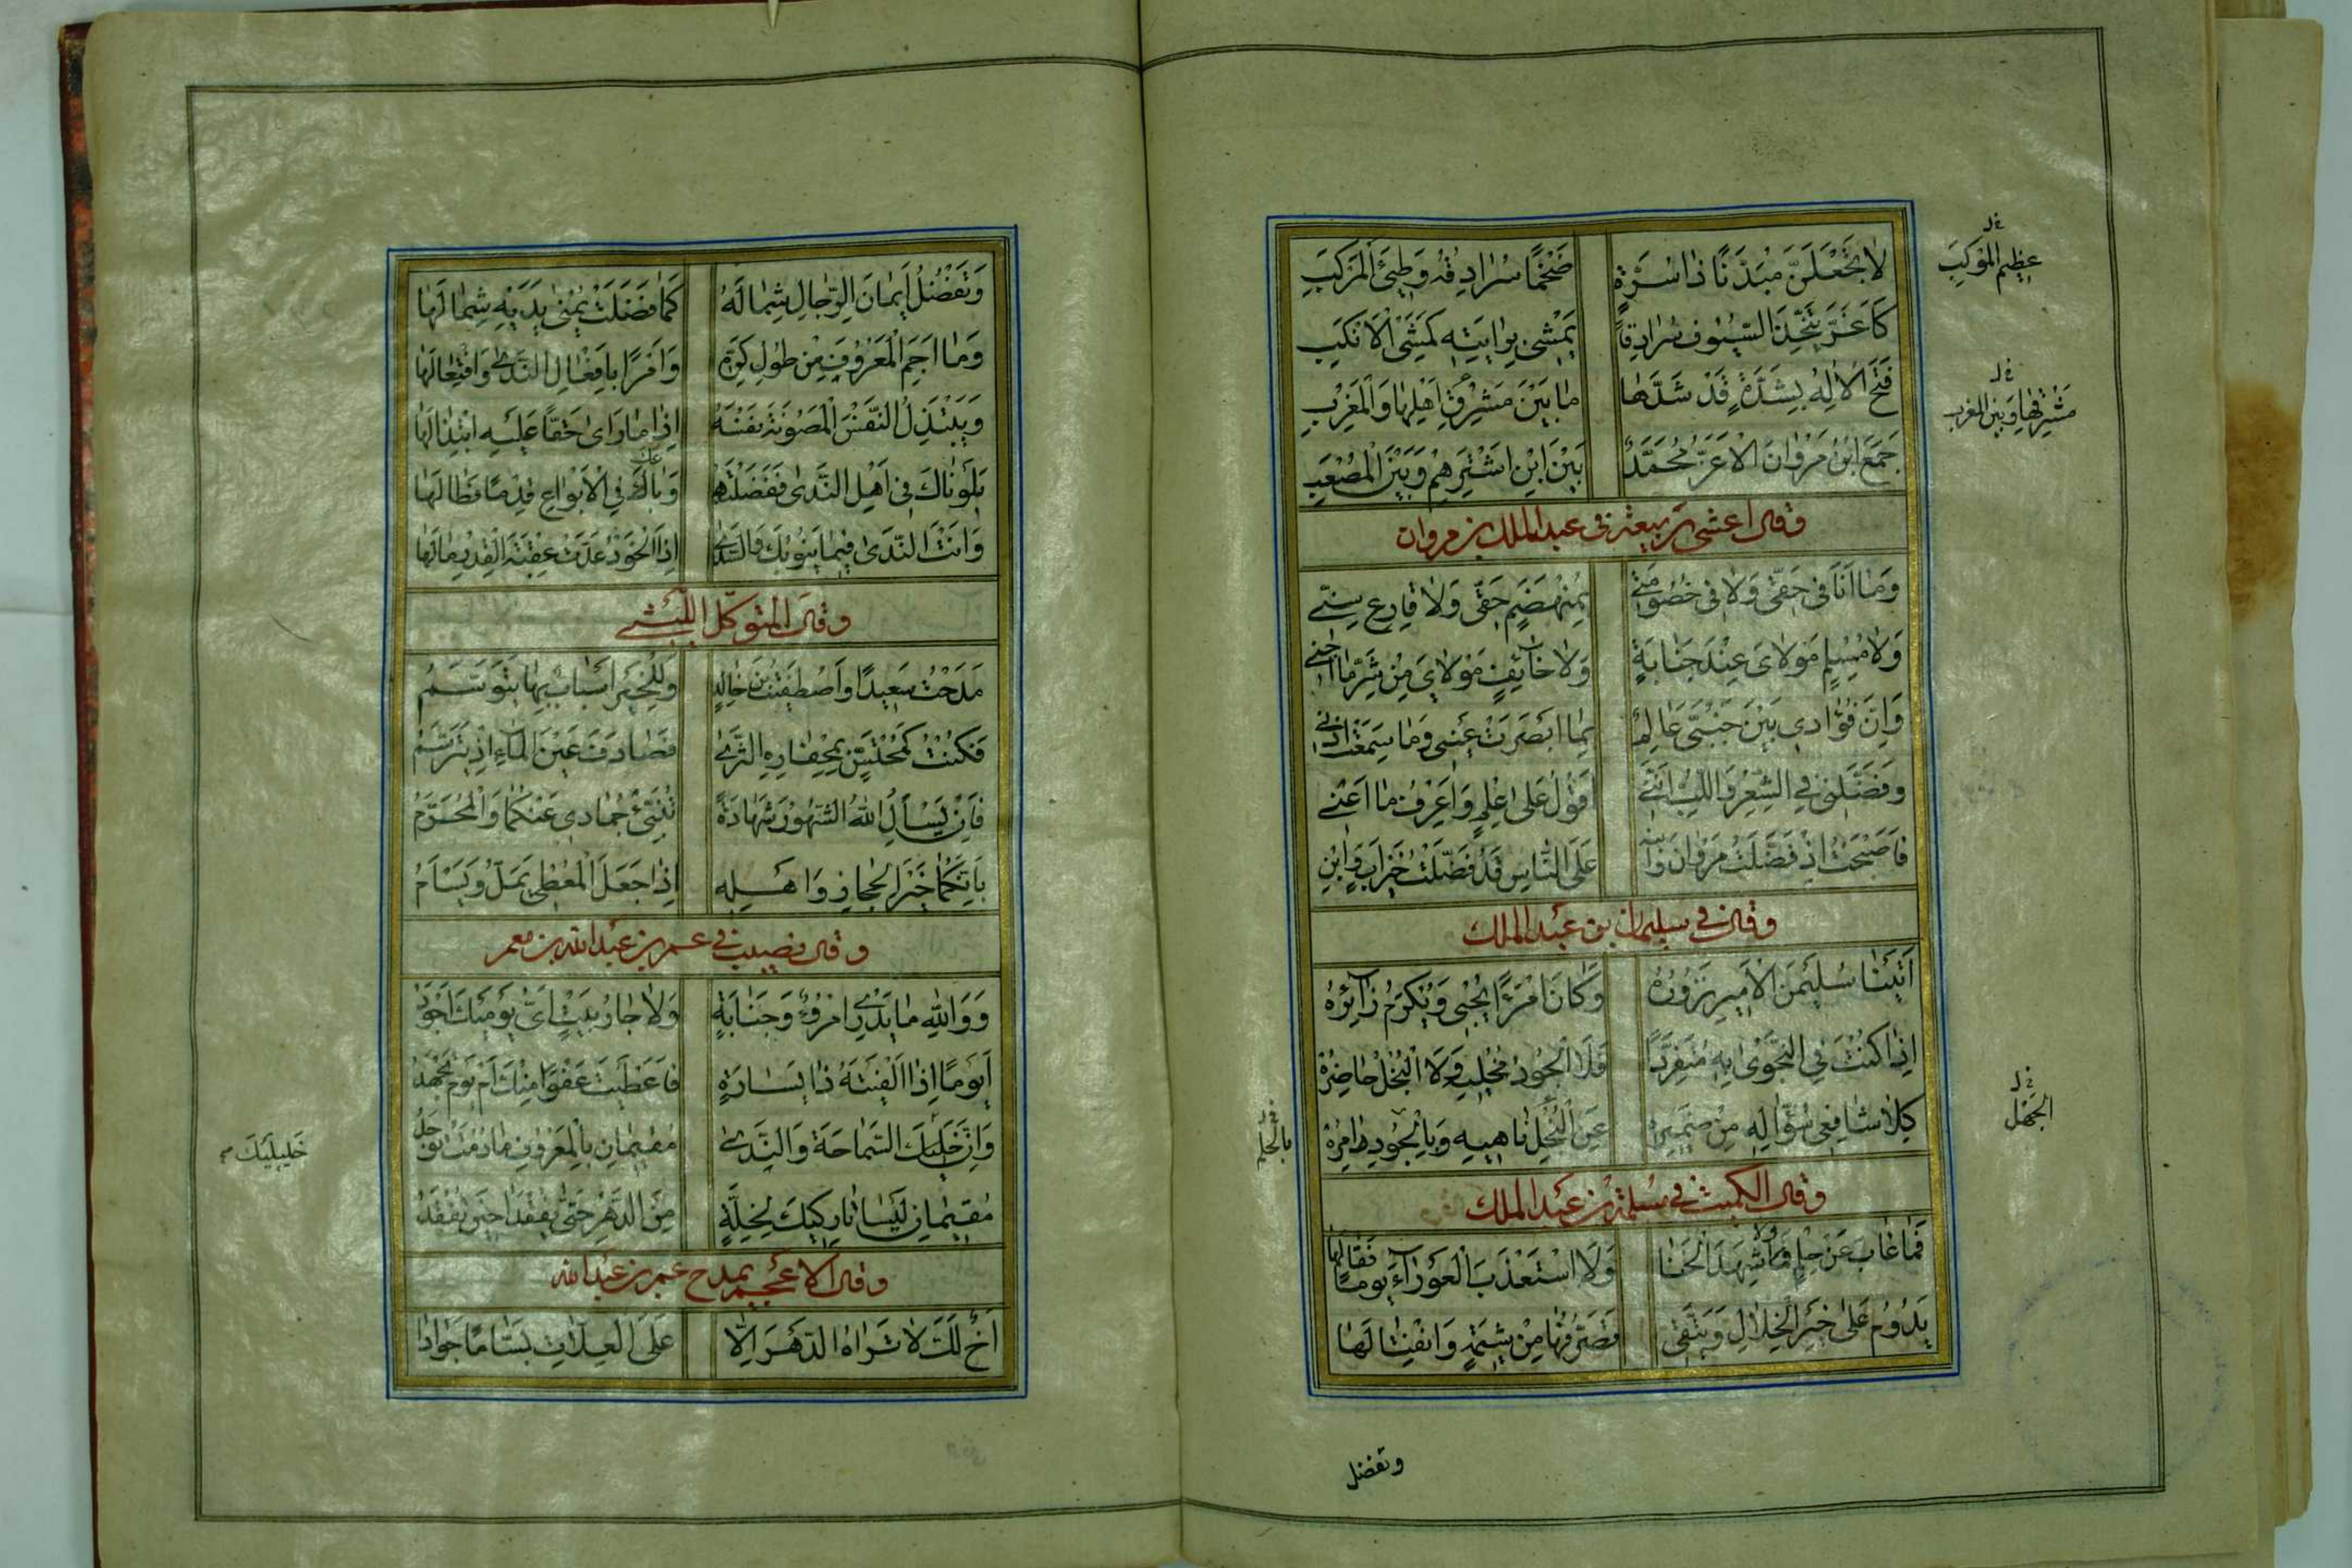 لَا تَجْعَلَنَّ مُبَدَّنًا ذَا سُرَّةٍ ضَخْمًا سُرَادِقُهُ وَطِيءَ الْمَرْكَبِ
عظيم الموكب
كَأَغَرَّ يَتَّخِذُ السُّيُوفَ سُرَادِقًا يَمْشِي بِرَايَتِهِ كَمَشْيِ الْأَنْكَبِ
فَتَحَ الْإِلَهُ بِشَدَّةٍ قَدْ شَدَّهَا مَا بَيْنَ مَشْرِقِ أَهْلِهَا وَالْمَغْرِبِ
مشرقها وبين المغرب
جَمَعَ ابْنُ مَرْوَانَ الْأَغَرُّ مُحَمَّدٌ بَيْنَ ابْنِ أَشْتَرِهِمْ وَبَيْنَ الْمُصْعَبِ
وقال اعشى ربيعة في عبد الملك بن مروان
وَمَا أَنَا فِي حَقِّي وَلَا فِي خُصُومَتِي بِمُهْتَضَمٍ حَقِّي وَلَا قَارِعٍ سِنِّي
وَلَا مُسْلِمٍ مَوْلَايَ عِنْدَ جَنَايَةٍ وَلَا خَائِفٍ مَوْلَايَ مِنْ شَرِّ مَا أَجْنِي
وَإِنَّ فُؤَادِي بَيْنَ جَنْبَيَّ عَالِمٌ بِمَا أَبْصَرَتْ عَيْنِي وَمَا سَمِعَتْ أُذْنِي
وَفَضَّلَنِي فِي الشِّعْرِ وَاللُّبِّ أَنَّنِي أَقُولُ عَلَى عِلْمٍ وَأَعْرِفُ مَا أَعْنِي
فَأَصْبَحْتُ إِذْ فَضَّلْتُ مَرْوَانَ وَابْنَهُ عَلَى النَّاسِ قَدْ فَضَّلْتُ خَيْرَ أَبٍ وَابْنِ
وقال في سليمان بن عبد الملك
أَتَيْنَا سُلَيْمَنَ الْأَمِيرَ نَزُورُهُ وَكَانَ امْرَءًا يُحْبِي وَيُكْرَمُ زَائِرُهُ
إِذَا كُنْتَ فِي النَّجْوَى بِهِ مُتَفَرِّدًا فَلَا الْجُودُ مُخْلِيهِ وَلَا الْبُخْلُ حَاضِرُهُ
كِلَا شَافِعَيْ سُؤَّالِهِ مِنْ ضَمِيرِهِ عَنِ الْبُخْلِ نَاهِيهِ وَبِالْجُودِ آمِرُهُ
الجهل
بالحلم
وقال الكميت في مسلمة بن عبد الملك
فَمَا غَابَ عَنْ حِلْمٍ وَلَا شَهِدَ الْخَنَا وَلَا اسْتَعْذَبَ الْعَوْرَاءَ يَوْمًا فَقَالَهَا
يَدُومُ عَلَى خَيْرِ الْخِلَالِ وَيَتَّقِي تَصَرُّفَهَا مِنْ شِيمَةٍ وَانْفِتَالَهَا
وتفضل
وَتَفْضُلُ أَيْمَانَ الرِّجَالِ شِمَالُهُ كَمَا فَضَلَتْ يُمْنَى يَدَيْهِ شِمَالَهَا
وَمَا أَجِمَ الْمَعْرُوفَ مِنْ طُولِ كَرِّهِ وَأَمْرًا بِأَفْعَالِ النَّدَى وَافْتِعَالَهَا
وَيَبْتَذِلُ النَّفْسَ الْمَصُونَةَ نَفْسَهُ إِذَا مَا رَأَى حَقًّا عَلَيْهِ ابْتِذَالَهَا
بَلَوْنَاكَ فِي أَهْلِ النَّدَى فَفَضَلْتَهُمْ وَبَاعَكَ فِي الْأَبْوَاعِ قِدْمًا فَطَالَهَا
وَأَنْتَ النَّدَى فِيمَا يَنُوبُكَ وَالسَّدَى إِذَا الْخَوْدُ عَدَّتْ عُقْبَةَ الْقِدْرِ مَالَهَا
وقال المتوكل الليثي
مَدَحْتُ سَعِيدًا وَاصْطَفَيْتُ ابْنَ خَالِدٍ وَلِلْخَيْرِ أَسْبَابٌ بِهَا يُتَوَسَّمُ
فَكُنْتُ كَمُجْتَسٍّ بِمِحْفَارِهِ الثَّرَى فَصَادَفَ عَيْنَ الْمَاءِ إِذْ يَتَرَسَّمُ
فَإِنْ يَسْأَلِ اللَّهُ الشُّهُورَ شَهَادَةً تُنَبِّئْ جُمَادَى عَنْكُمَا وَالْمُحَرَّمُ
بِأَنَّكُمَا خَيْرُ الْحِجَازِ وَأَهْلِهِ إِذَا جَعَلَ الْمُعْطِي يَمَلُّ وَيَسْأَمُ
وقال نصيب في عمر بن عبد الله بن معمر
وَوَاللَّهِ مَا يَدْرِي امْرُؤٌ وَجَنَابَةٍ وَلَا جَارُ بَيْتٍ أَيُّ يَوْمَيْكَ أَجْوَدُ
أَيَوْمًا إِذَا أَلْفَيْتَهُ ذَا يَسَارَةٍ فَأَعْطَيْتَ عَفْوًا مِنْكَ أَمْ يَوْمَ تُجْهَدُ
وَإِنَّ خَلِيلَيْكَ السَّمَاحَةَ وَالنَّدَى مُقِيمَانِ بِالْمَعْرُوفِ مَا دُمْتَ تُوجَدُ
خليليك
مُقِيمَانِ لَيْسَا تَارِكَيْكَ لِخَلَّةٍ مِنَ الدَّهْرِ حَتَّى يُفْقَدَا حِينَ تُفْقَدُ
وقال الاعجم يمدح عمر بن عبد الله
أَخٌ لَكَ لَا تَرَاهُ الدَّهْرَ إِلَّا عَلَى الْعِلَّاتِ بَسَّامًا جَوَادَا